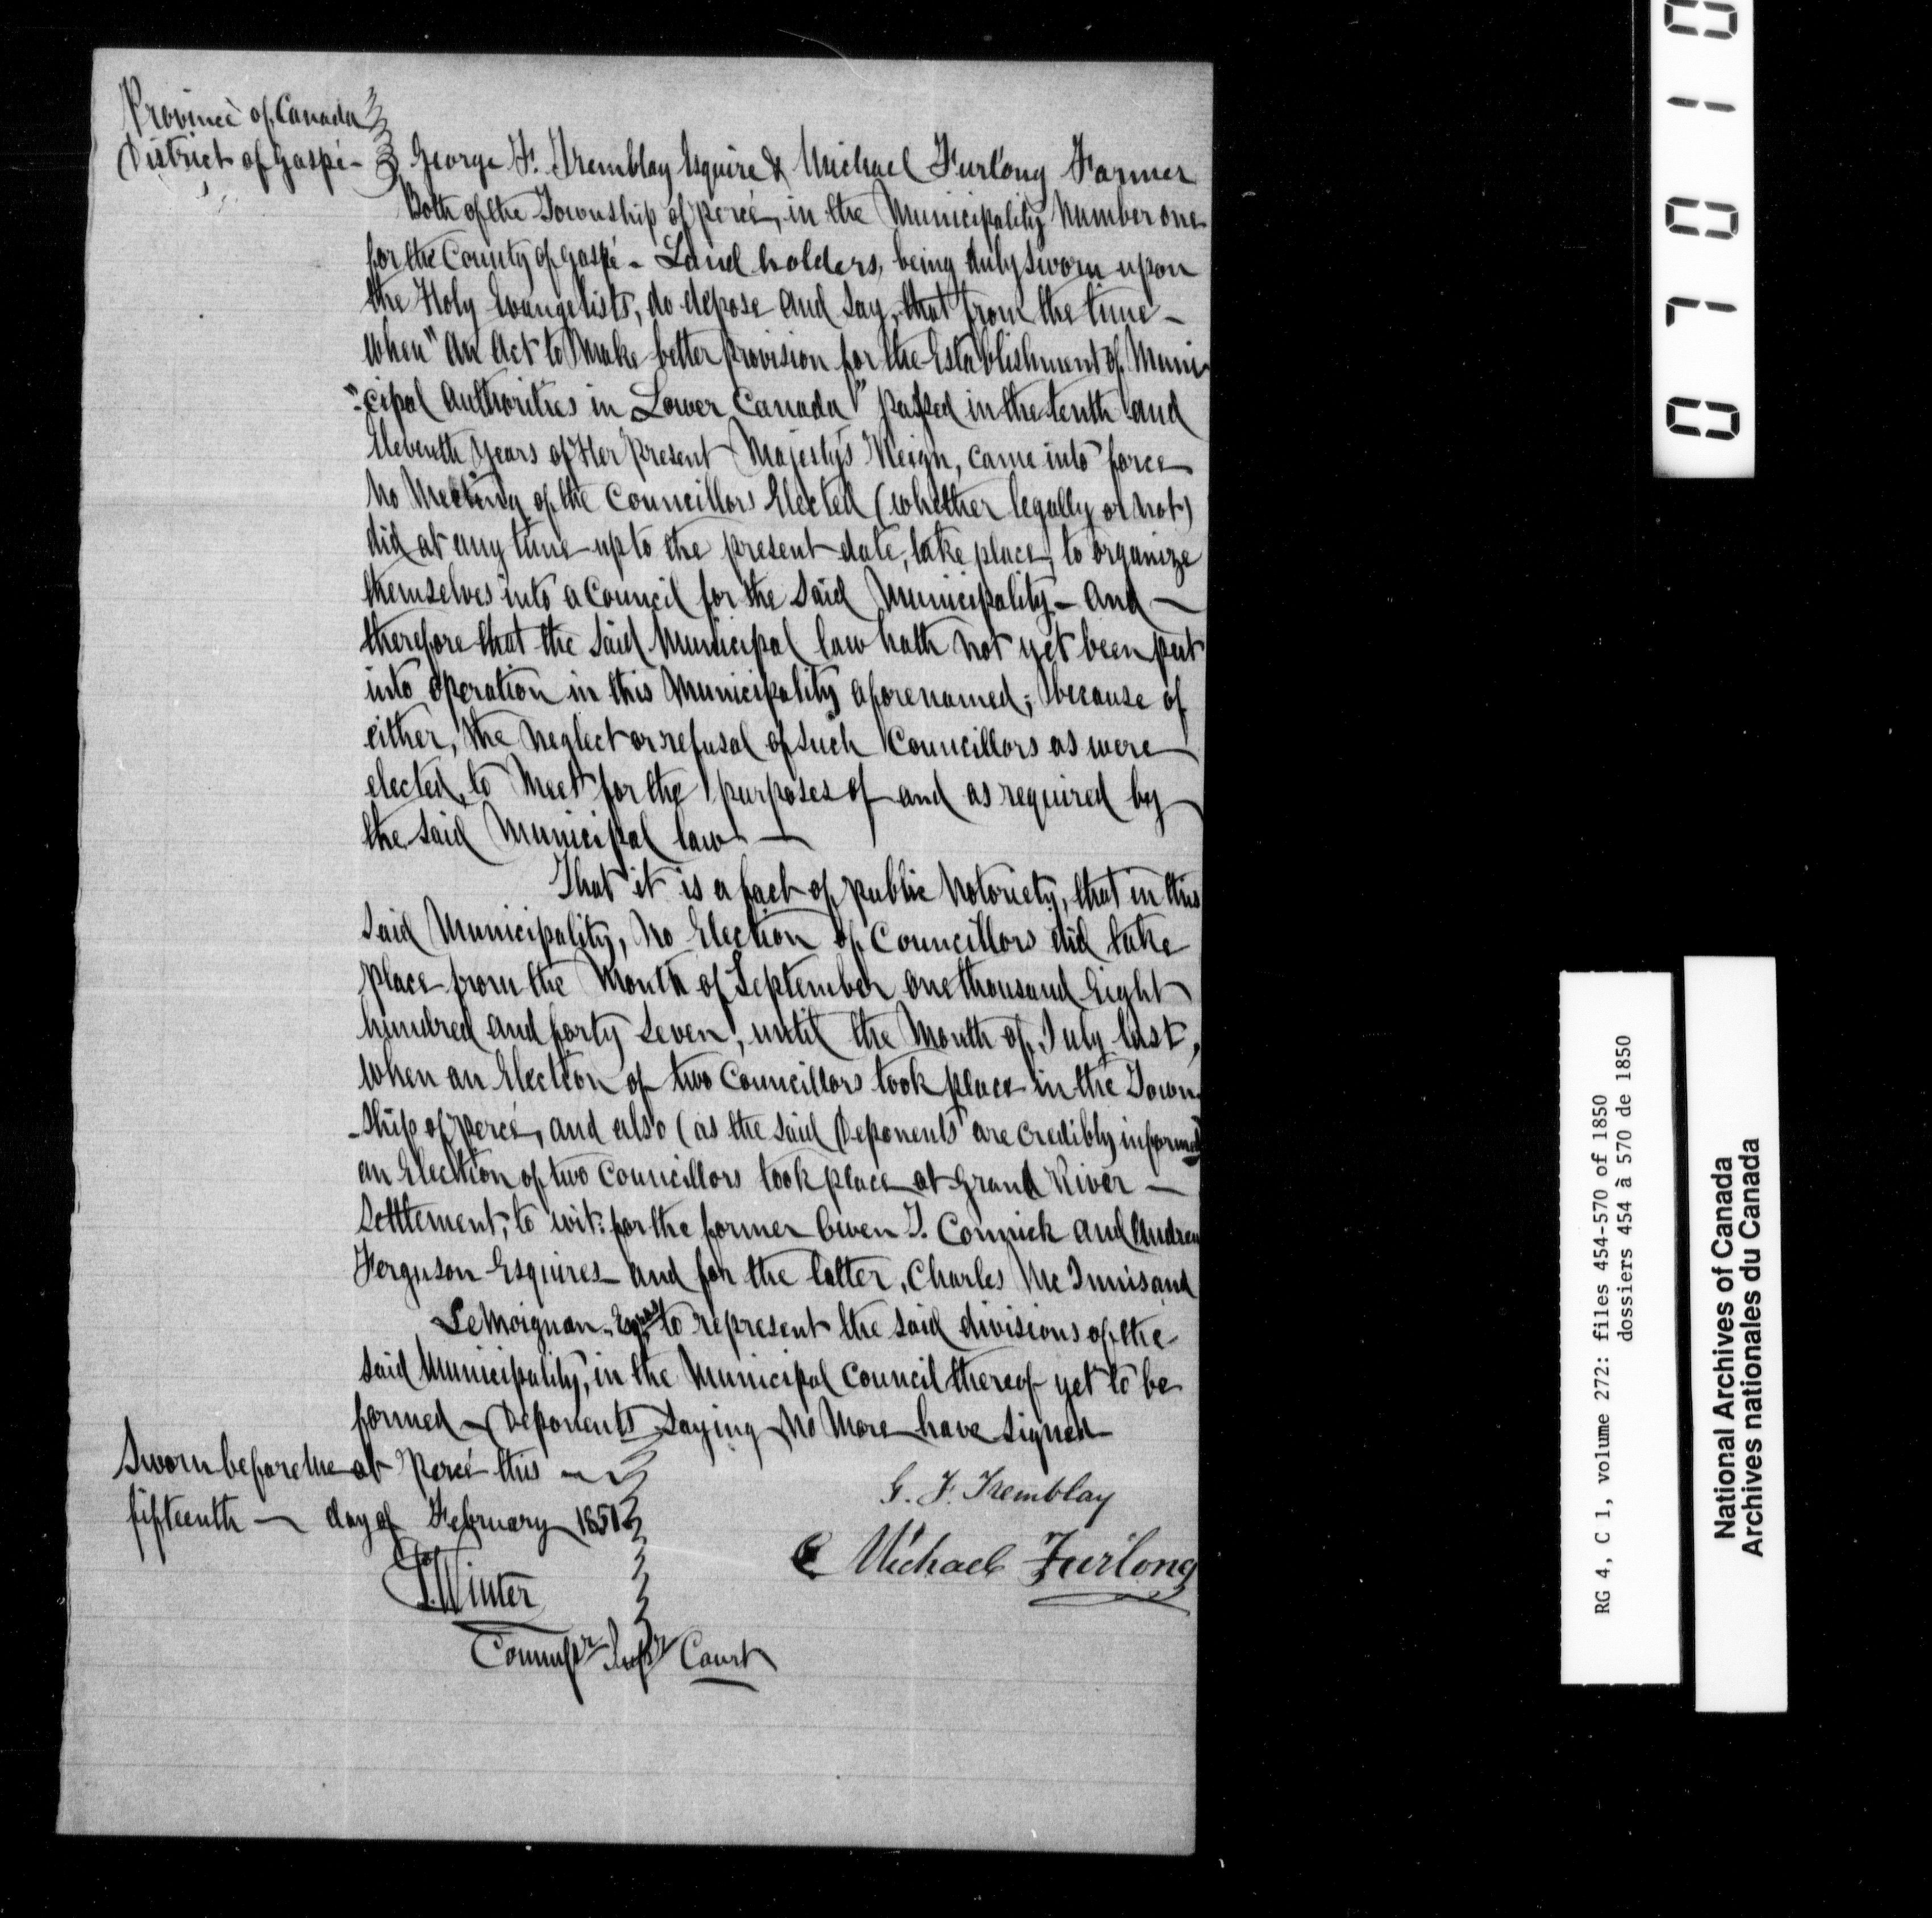 Province of Canada
District of Gaspé -
George F. Tremblay Esquire & Michael Furlong Farmer
Both of the Township of percé, in the Municipality Number one
for the County of Gaspé - Land holders, being duly Sworn upon
the Holy Evangelists, do depose and Say, that from the time -
when "An Act to Make better provision for the Establishment of Muni-
"cipal Authorities in Lower Canada" passed in the tenth and
Eleventh Years of Her present Majesty's Reign, came into force
No Meeting of the Councillors Elected (whether legally or not)
did at any time up to the present date, take place, to organize
themselves into a Council for the Said Municipality - And -
therefore that the Said Municipal law hath not yet been put
into operation in this Municipality aforenamed; because of
either, the Neglect or refusal of such Councillors as were
elected, to Meet for the purposes of and as required by
the Said Municipal law -
That it is a fact of public Notoriety, that in this
Said Municipality, No Election of Councillors did take
place from the Month of September one thousand Eight
hundred and forty Seven, until the Month of July last,
when an Election of two Councillors took place in the Town-
-Ship of percé, and also (as the Said Deponents are credibly informed)
an Election of two Councillors took place at Grand River -
Settlement, to wit: for the former Owen T. Connick and Andrew
Ferguson Esquires - and for the latter, Charles McInnis and
LeMoignan, Esqrs to represent the said divisions of the
Said Municipality, in the Municipal Council thereof yet to be
formed - Deponents Saying No More have Signed
Sworn before Me at Percé this -
fifteenth - day of February 1851
G. F. Tremblay
Michael Furlong
P. Winter
Commissr Supr Court
0 7 0 1 0
RG 4, C 1, volume 272: files 454-570 of 1850
dossiers 454 à 570 de 1850
National Archives of Canada
Archives nationales du Canada